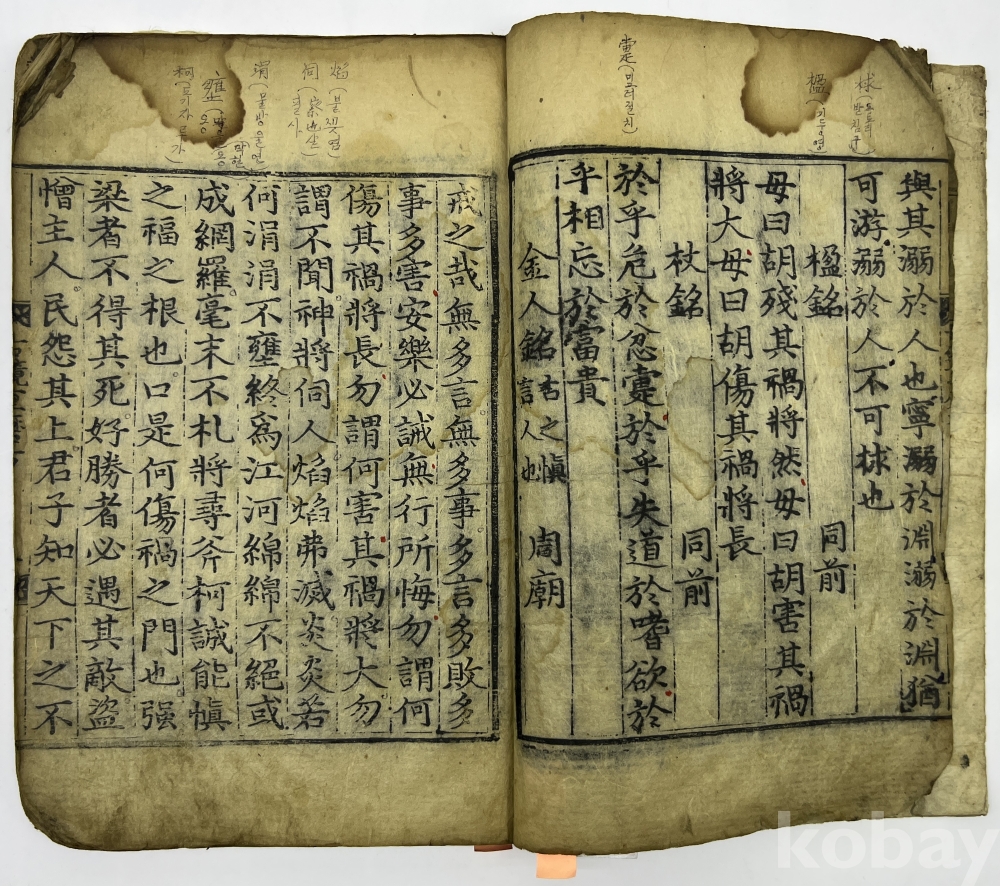 與其溺於人也寧溺於淵溺於淵猶
可游溺於人不可捄也
楹銘 同前
毋曰胡殘其禍將然毋曰胡害其禍
將大毋曰胡傷其禍將長
杖銘 同前
於乎危於忿疐於乎失道於嗜欲於
乎相忘於富貴
金人銘 古之愼言人也 周廟
戒之哉無多言無多事多言多敗多
事多害安樂必誡無行所悔勿謂何
傷其禍將長勿謂何害其禍將大勿
謂不聞神將伺人焰焰弗滅炎炎若
何涓涓不壅終爲江河綿綿不絕或
成網羅毫末不札將尋斧柯誠能愼
之福之根也口是何傷禍之門也强
梁者不得其死好勝者必遇其敵盜
憎主人民怨其上君子知天下之不
楹(기둥영)
疐(미끄러질치)
焰(불꽃염)
伺
涓(물방울연)
柯
kobay